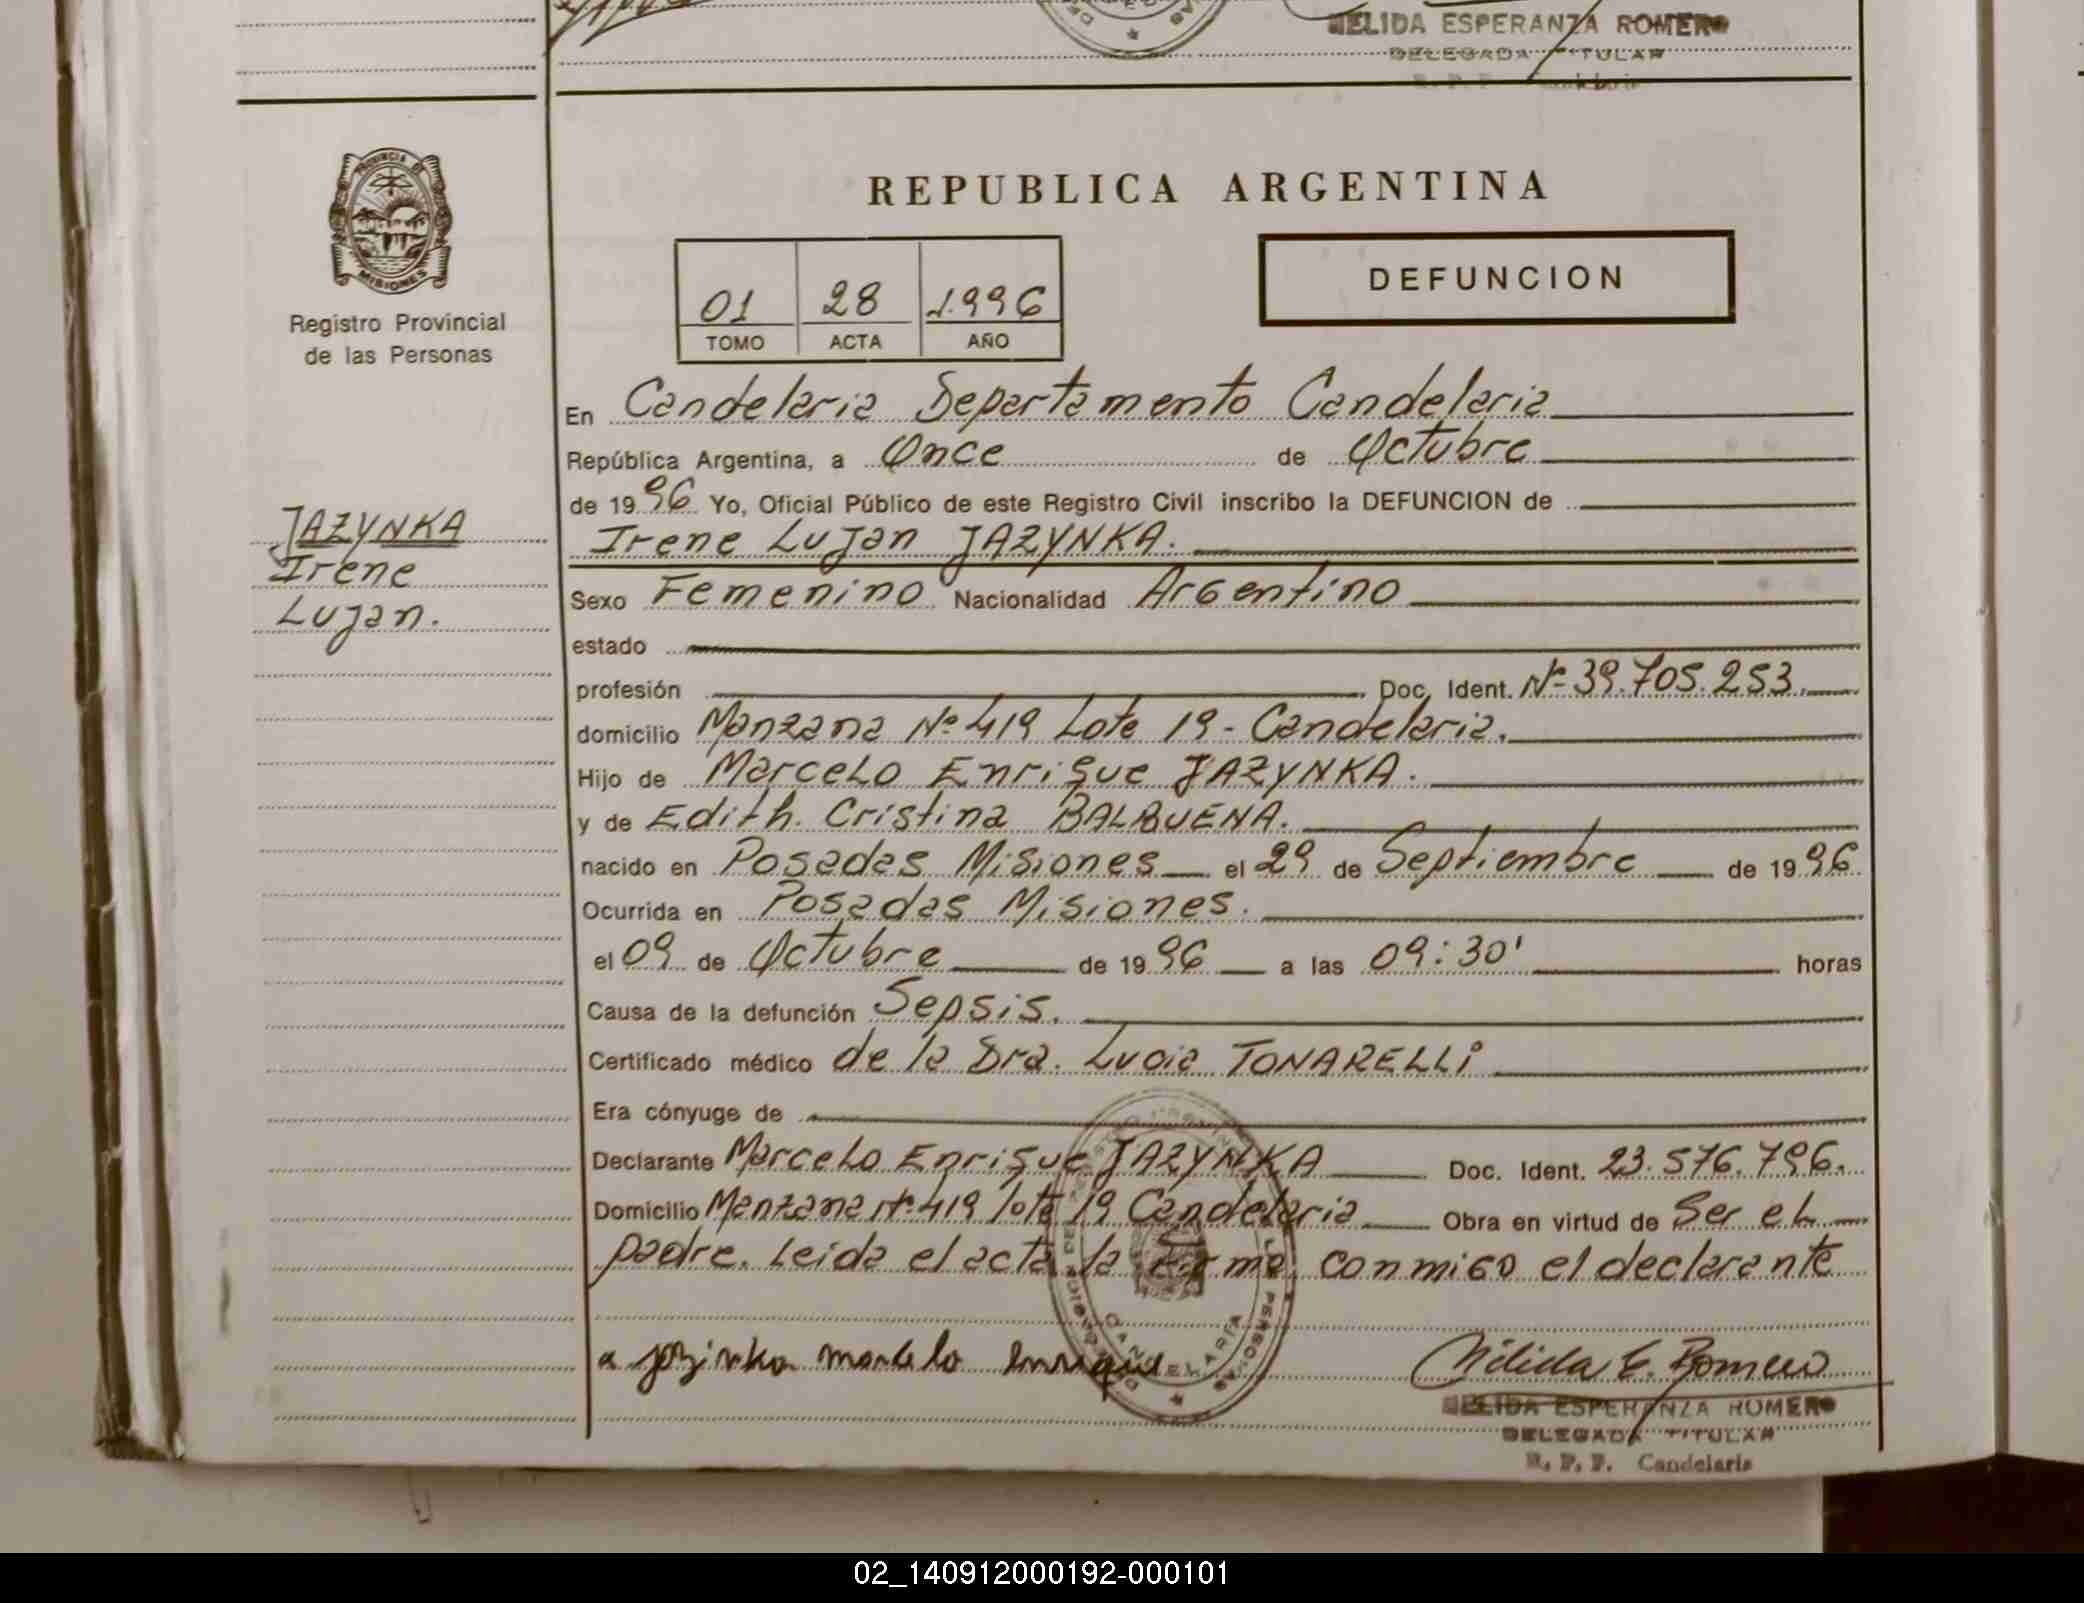 NELIDA ESPERANZA ROMERO
DELEGADA TITULAR
R. P. P. Candelaria
PROVINCIA DE
MISIONES
Registro Provincial
de las Personas
REPUBLICA ARGENTINA
01 28 1.996
TOMO ACTA AÑO
DEFUNCION
En Candelaria Departamento Candelaria
República Argentina, a Once de Octubre
de 1996 Yo, Oficial Público de este Registro Civil inscribo la DEFUNCION de
JAZYNKA
Irene
Lujan.
Irene Lujan JAZYNKA.
Sexo Femenino Nacionalidad Argentino
estado
profesión Doc. Ident. Nº 39.705.253.
domicilio Manzana Nº 419 Lote 19 - Candelaria.
Hijo de Marcelo Enrique JAZYNKA.
y de Edith. Cristina BALBUENA.
nacido en Posadas Misiones el 29 de Septiembre de 1996.
Ocurrida en Posadas Misiones.
el 09 de Octubre de 1996 a las 09:30' horas
Causa de la defunción Sepsis.
Certificado médico de la Dra. Lucia TONARELLI
Era cónyuge de
Declarante Marcelo Enrique JAZYNKA Doc. Ident. 23.576.796.
Domicilio Manzana Nº 419 lote 19 Candelaria Obra en virtud de Ser el
padre. Leida el acta la firma conmigo el declarante
CANDELARIA
Nélida E. Romero
NELIDA ESPERANZA ROMERO
DELEGADA TITULAR
R. P. P. Candelaria
02_140912000192-000101